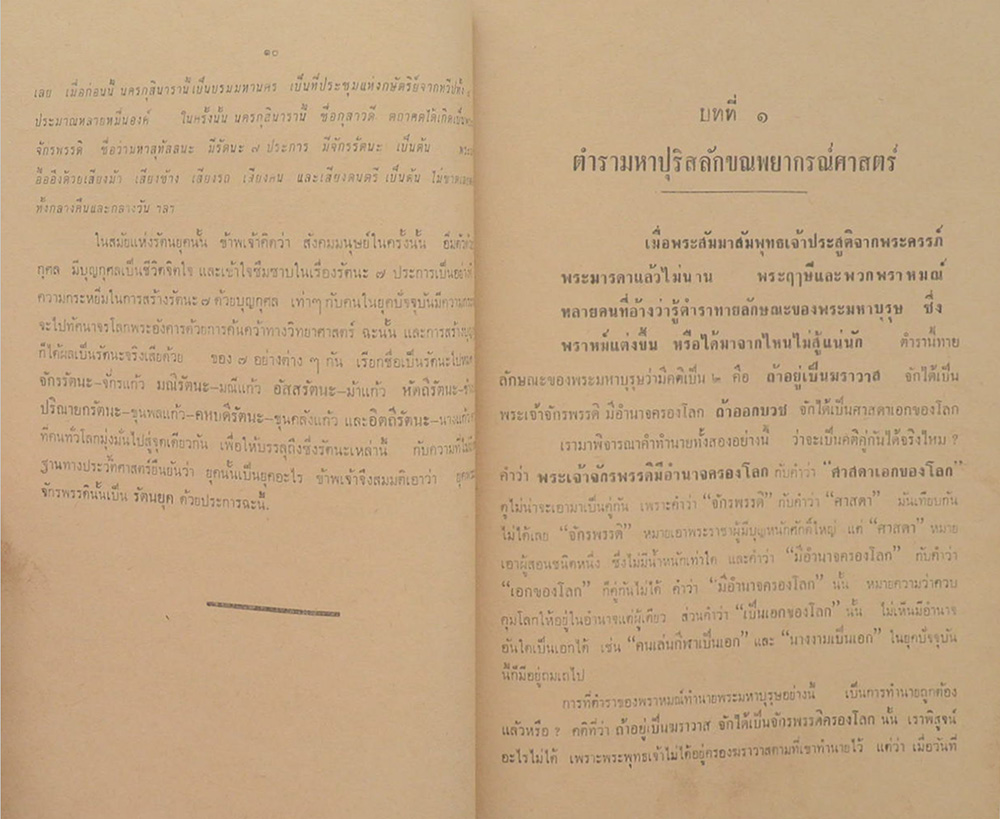 ๑๐
เลย เมื่อก่อนนี้ นครกุสินารานี้เป็นบรมมหานคร เป็นที่ประชุมแห่งกษัตริย์จากทวีปทั้ง ๔
ประมาณหลายหมื่นองค์ ในครั้งนั้น นครกุสินารานี้ ชื่อกุสาวดี ตถาคตได้เกิดเป็น
จักรพรรดิ ชื่อว่ามหาสุทัสสนะ มีรัตนะ ๗ ประการ มีจักรรัตนะ เป็นต้น
อื้ออึงด้วยเสียงม้า เสียงช้าง เสียงรถ เสียงคน และเสียงดนตรี เป็นต้น ไม่ขาด
ทั้งกลางคืนและกลางวัน ฯลฯ
ในสมัยแห่งรัตนยุคนั้น ข้าพเจ้าคิดว่า สังคมมนุษย์ในครั้งนั้น
กุศล มีบุญกุศลเป็นชีวิตจิตใจ และเข้าใจซึมซาบในเรื่องรัตนะ ๗ ประการเป็นอย่างดี
ความกระหยิ่มในการสร้างรัตนะ ๗ ด้วยบุญกุศล เท่าๆ กับคนในยุคปัจจุบันมีความ
จะไปทัศนาจรโลกพระอังคารด้วยการค้นคว้าทางวิทยาศาสตร์ ฉะนั้น และการสร้าง
ก็ได้ผลเป็นรัตนะจริงเสียด้วย ของ ๗ อย่างต่าง ๆ กัน เรียกชื่อเป็นรัตนะไป
จักรรัตนะ–จักรแก้ว มณีรัตนะ–มณีแก้ว อัสสรัตนะ–ม้าแก้ว หัตถีรัตนะ–
ปริณายกรัตนะ–ขุนพลแก้ว–คหบดีรัตนะ–ขุนคลังแก้ว และอิตถีรัตนะ–นางแก้ว
ที่คนทั่วโลกมุ่งมั่นไปสู่จุดเดียวกัน เพื่อให้บรรลุถึงซึ่งรัตนะเหล่านี้ กับความที่ไม่มี
ฐานทางประวัติศาสตร์ยืนยันว่า ยุคนั้นเป็นยุคอะไร ข้าพเจ้าจึงสมมติเอาว่า
จักรพรรดินั้นเป็น รัตนยุค ด้วยประการฉะนี้.
บทที่ ๑
ตำรามหาปุริสลักขณพยากรณ์ศาสตร์
เมื่อพระสัมมาสัมพุทธเจ้าประสูติจากพระครรภ์
พระมารดาแล้วไม่นาน พระฤๅษีและพวกพราหมณ์
หลายคนที่อ้างว่ารู้ตำราทายลักษณะของพระมหาบุรุษ ซึ่ง
พราหม์แต่งขึ้น หรือได้มาจากไหนไม่สู้แน่นัก ตำรานี้ทาย
ลักษณะของพระมหาบุรุษว่ามีคติเป็น ๒ คือ ถ้าอยู่เป็นฆราวาส จักได้เป็น
พระเจ้าจักรพรรดิ มีอำนาจครองโลก ถ้าออกบวช จักได้เป็นศาสดาเอกของโลก
เรามาพิจารณาคำทำนายทั้งสองอย่างนี้ ว่าจะเป็นคติคู่กันได้จริงไหม ?
คำว่า พระเจ้าจักรพรรดิมีอำนาจครองโลก กับคำว่า “ศาสดาเอกของโลก”
ดูไม่น่าจะเอามาเป็นคู่กัน เพราะคำว่า “จักรพรรดิ” กับคำว่า “ศาสดา” มันเทียบกัน
ไม่ได้เลย “จักรพรรดิ” หมายเอาพระราชาผู้มีบุญหนักศักดิ์ใหญ่ แต่ “ศาสดา” หมาย
เอาผู้สอนชนิดหนึ่ง ซึ่งไม่มีน้ำหนักเท่าใด และคำว่า “มีอำนาจครองโลก” กับคำว่า
“เอกของโลก” ก็คู่กันไม่ได้ คำว่า “มีอำนาจครองโลก” นั้น หมายความว่าควบ
คุมโลกให้อยู่ในอำนาจแต่ผู้เดียว ส่วนคำว่า “เป็นเอกของโลก” นั้น ไม่เห็นมีอำนาจ
อันใดเป็นเอกได้ เช่น “คนเล่นกีฬาเป็นเอก” และ “นางงามเป็นเอก” ในยุคปัจจุบัน
นี้ก็มีอยู่ถมเถไป
การที่ตำราของพราหมณ์ทำนายพระมหาบุรุษอย่างนี้ เป็นการทำนายถูกต้อง
แล้วหรือ ? คติที่ว่า ถ้าอยู่เป็นฆราวาส จักได้เป็นจักรพรรดิครองโลก นั้น เราพิสูจน์
อะไรไม่ได้ เพราะพระพุทธเจ้าไม่ได้อยู่ครองฆราวาสตามที่เขาทำนายไว้ แต่ว่า เมื่อวันที่